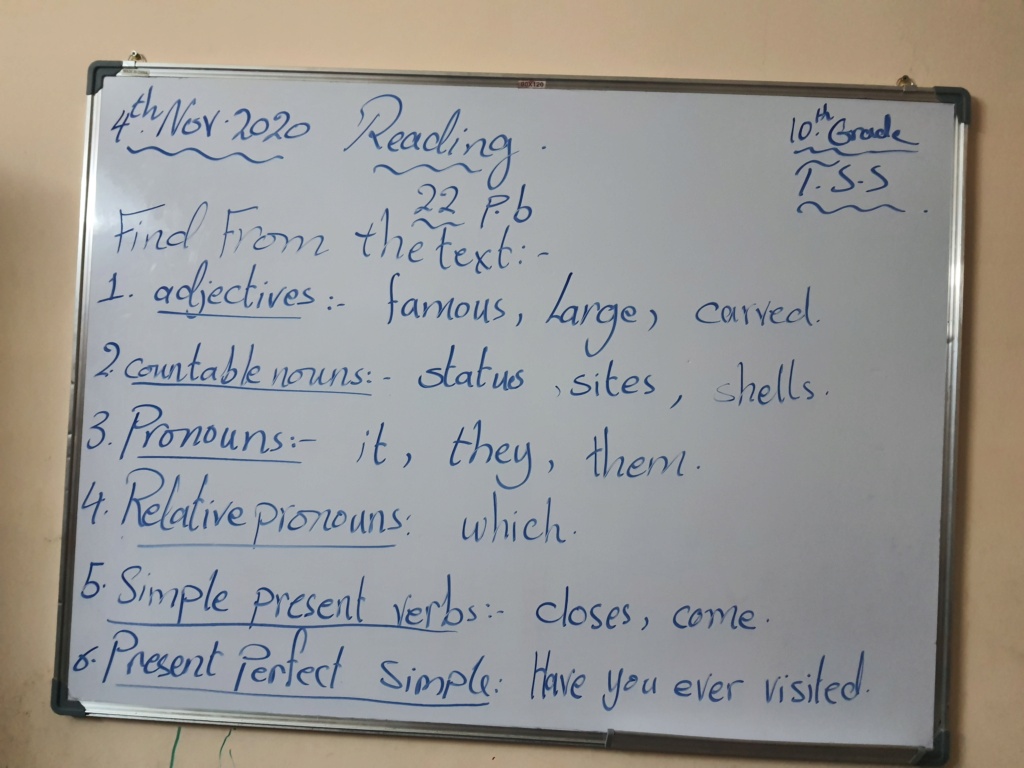 4th. Nov. 2020 Reading. 10.th Grade
T.S.S.
22 P.b
Find From the text:-
1. adjectives:- famous, Large, carved.
2. countable nouns:- status, sites, shells.
3. Pronouns:- it, they, them.
4. Relative pronouns: which.
5. Simple present verbs:- closes, come.
6. Present Perfect Simple: Have you ever visited.